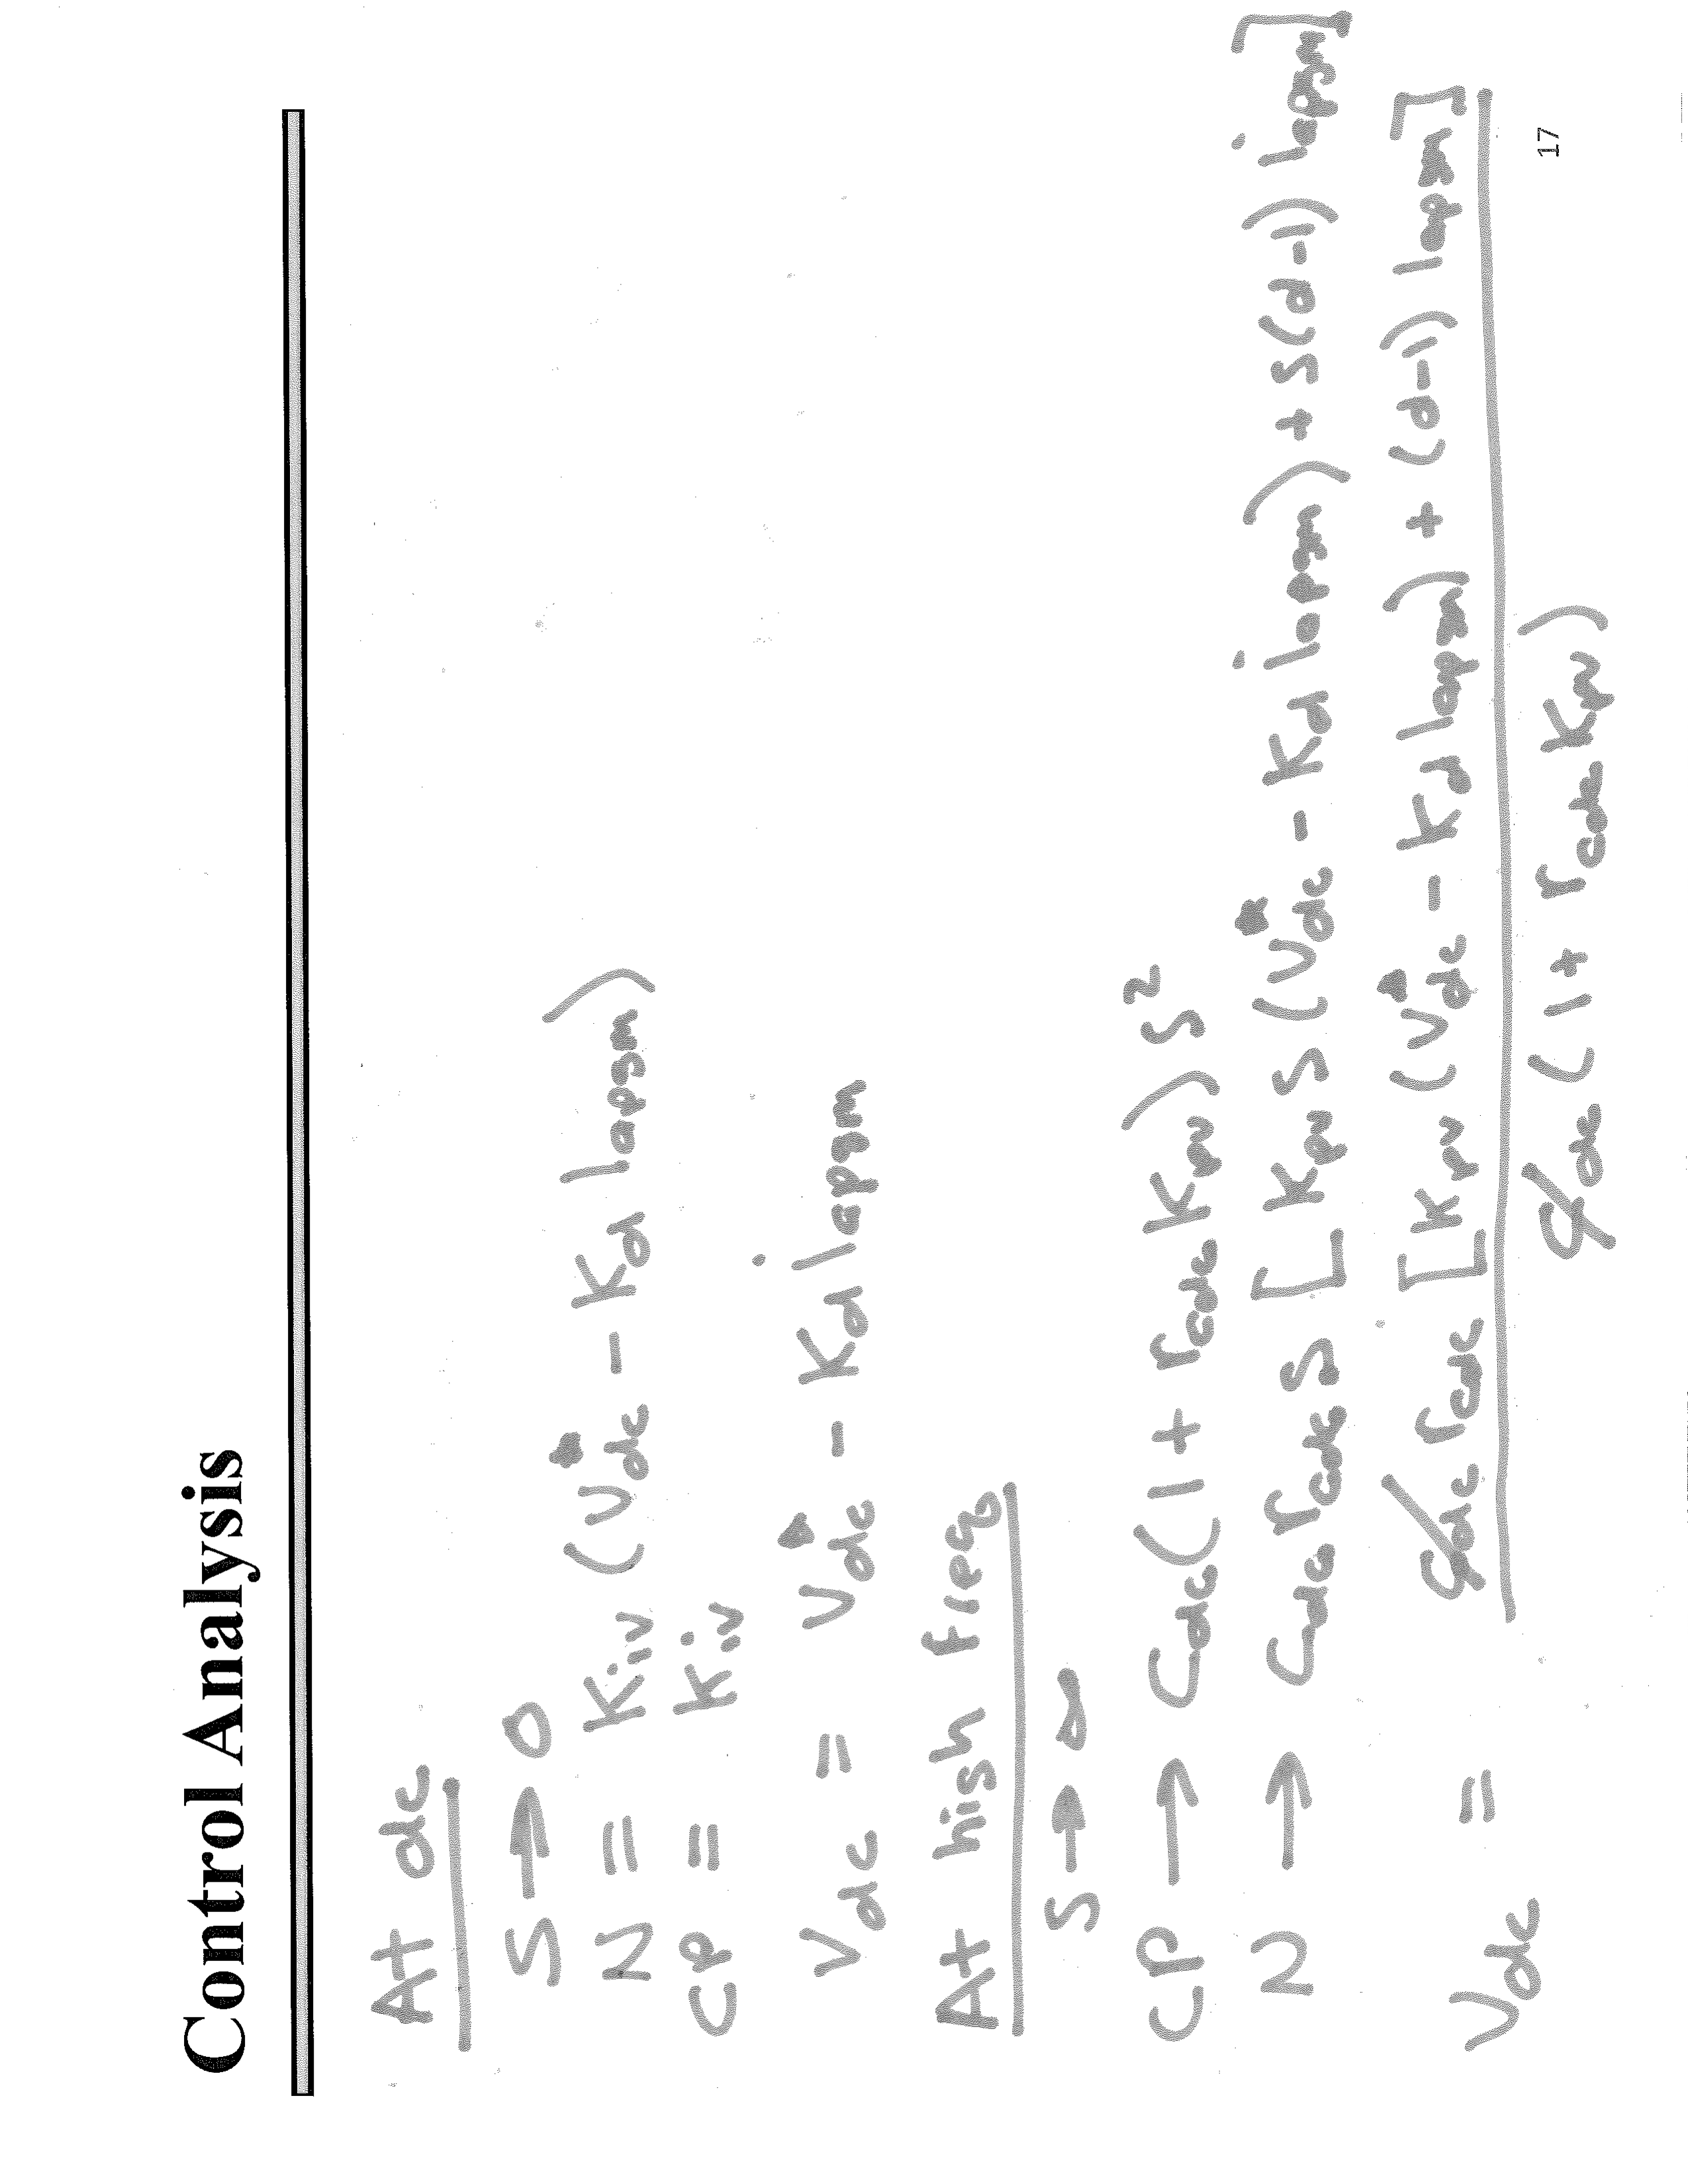 Control Analysis
At dc
S → 0
N = Kiv (Vdc* - Kd iapsm)
CP = Kiv
Vdc = Vdc* - Kd iapsm
At high freq
S → ∞
CP → Cdc (1 + rcdc Kpv) S²
N → Cdc rcdc S [Kpv S (Vdc* - Kd iapsm) + S(d-1) iapsm]
Vdc = Cdc rcdc [Kpv (Vdc* - Kd iapsm) + (d-1) iapsm]
Cdc (1 + rcdc Kpv)
17